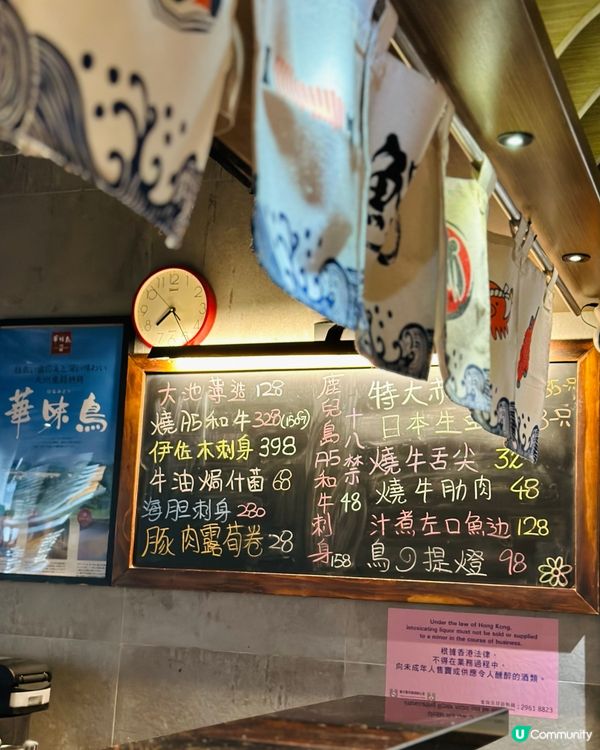 華味鳥
華味鳥
大池尊造 128
燒A5和牛 328(150g)
伊佐木刺身 398
牛油焗什菌 68
海胆刺身 280
豚肉露荀卷 28
鹿兒島A5和牛刺身 158
十八禁 48
特大赤
日本生
燒牛舌尖 32
燒牛肋肉 48
汁煮左口魚边 128
鳥の提燈 98
魚
Under the law of Hong Kong,
intoxicating liquor must not be sold or supplied
to a minor in the course of business.
根據香港法律,
不得在業務過程中,
向未成年人售賣或供應令人醺醉的酒類。
2961 8823
U Community